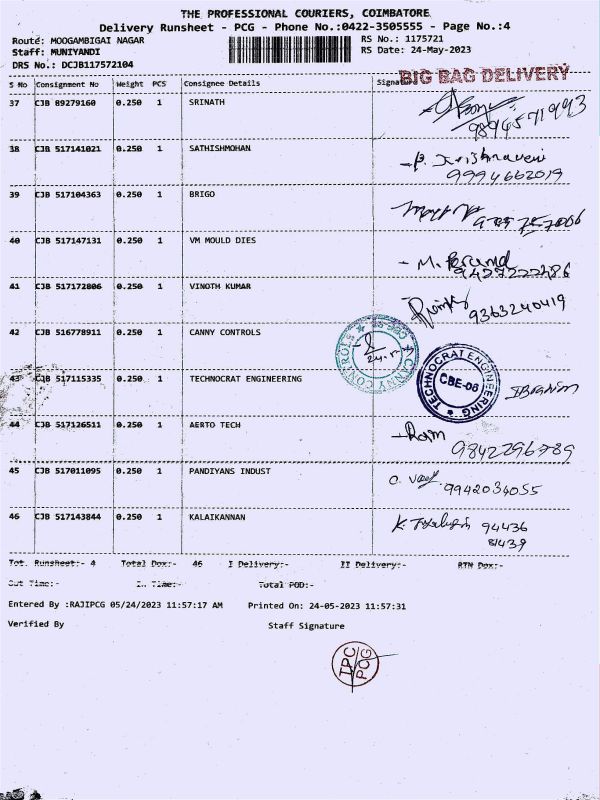 THE PROFESSIONAL COURIERS, COIMBATORE
Delivery Runsheet - PCG - Phone No.:0422-3505555 - Page No.:4
Route: MOOGAMBIGAI NAGAR RS No.: 1175721
Staff: MUNIYANDI RS Date: 24-May-2023
DRS No.: DCJB117572104
BIG BAG DELIVERY
S No Consignment No Weight PCS Consignee Details
37 CJB 89279160 0.250 1 SRINATH
38 CJB 517141021 0.250 1 SATHISHMOHAN
9994662019
39 CJB 517104363 0.250 1 BRIGO
40 CJB 517147131 0.250 1 VM MOULD DIES
41 CJB 517172806 0.250 1 VINOTH KUMAR
9363240419
42 CJB 516778911 0.250 1 CANNY CONTROLS
CANNY CONTROLS
43 CJB 517115335 0.250 1 TECHNOCRAT ENGINEERING
TECHNOCRAT ENGINEERING
CBE-06
Ibrahim
44 CJB 517126511 0.250 1 AERTO TECH Ram
9842296789
45 CJB 517011095 0.250 1 PANDIYANS INDUST
9942034055
46 CJB 517143844 0.250 1 KALAIKANNAN
94436
81439
Tot. Runsheet:- 4 Total Dox:- 46 I Delivery:- II Delivery:- RTN Dox:-
Out Time:- In Time:- Total POD:-
Entered By :RAJIPCG 05/24/2023 11:57:17 AM Printed On: 24-05-2023 11:57:31
Verified By Staff Signature
IPC
PCG